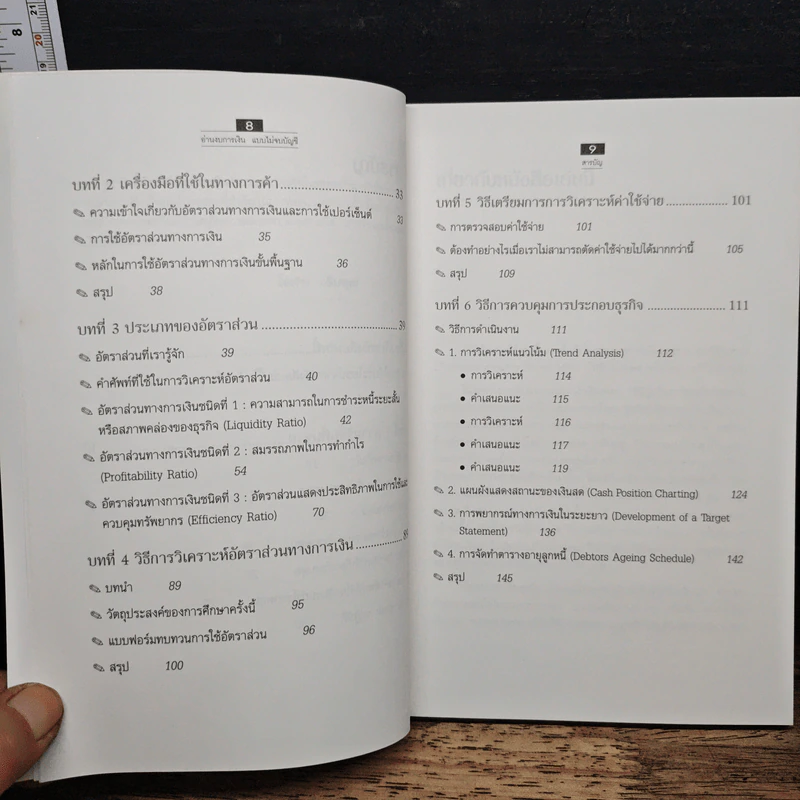 8
21
20
8
อ่านงบการเงิน แบบไม่จบบัญชี
บทที่ 2 เครื่องมือที่ใช้ในทางการค้า........................33
ความเข้าใจเกี่ยวกับอัตราส่วนทางการเงินและการใช้เปอร์เซ็นต์ 33
การใช้อัตราส่วนทางการเงิน 35
หลักในการใช้อัตราส่วนทางการเงินขั้นพื้นฐาน 36
สรุป 38
บทที่ 3 ประเภทของอัตราส่วน...............................39
อัตราส่วนที่เรารู้จัก 39
คำศัพท์ที่ใช้ในการวิเคราะห์อัตราส่วน 40
อัตราส่วนทางการเงินชนิดที่ 1 : ความสามารถในการชำระหนี้ระยะสั้น
หรือสภาพคล่องของธุรกิจ (Liquidity Ratio) 42
อัตราส่วนทางการเงินชนิดที่ 2 : สมรรถภาพในการทำกำไร
(Profitability Ratio) 54
อัตราส่วนทางการเงินชนิดที่ 3 : อัตราส่วนแสดงประสิทธิภาพในการใช้และ
ควบคุมทรัพยากร (Efficiency Ratio) 70
บทที่ 4 วิธีการวิเคราะห์อัตราส่วนทางการเงิน............89
บทนำ 89
วัตถุประสงค์ของการศึกษาครั้งนี้ 95
แบบฟอร์มทบทวนการใช้อัตราส่วน 96
สรุป 100
9
สารบัญ
บทที่ 5 วิธีเตรียมการการวิเคราะห์ค่าใช้จ่าย...................101
การตรวจสอบค่าใช้จ่าย 101
ต้องทำอย่างไรเมื่อเราไม่สามารถตัดค่าใช้จ่ายไปได้มากกว่านี้ 105
สรุป 109
บทที่ 6 วิธีการควบคุมการประกอบธุรกิจ.......................111
วิธีการดำเนินงาน 111
1. การวิเคราะห์แนวโน้ม (Trend Analysis) 112
● การวิเคราะห์ 114
● คำเสนอแนะ 115
● การวิเคราะห์ 116
● คำเสนอแนะ 117
● คำเสนอแนะ 119
2. แผนผังแสดงสถานะของเงินสด (Cash Position Charting) 124
3. การพยากรณ์ทางการเงินในระยะยาว (Development of a Target
Statement) 136
4. การจัดทำตารางอายุลูกหนี้ (Debtors Ageing Schedule) 142
สรุป 145